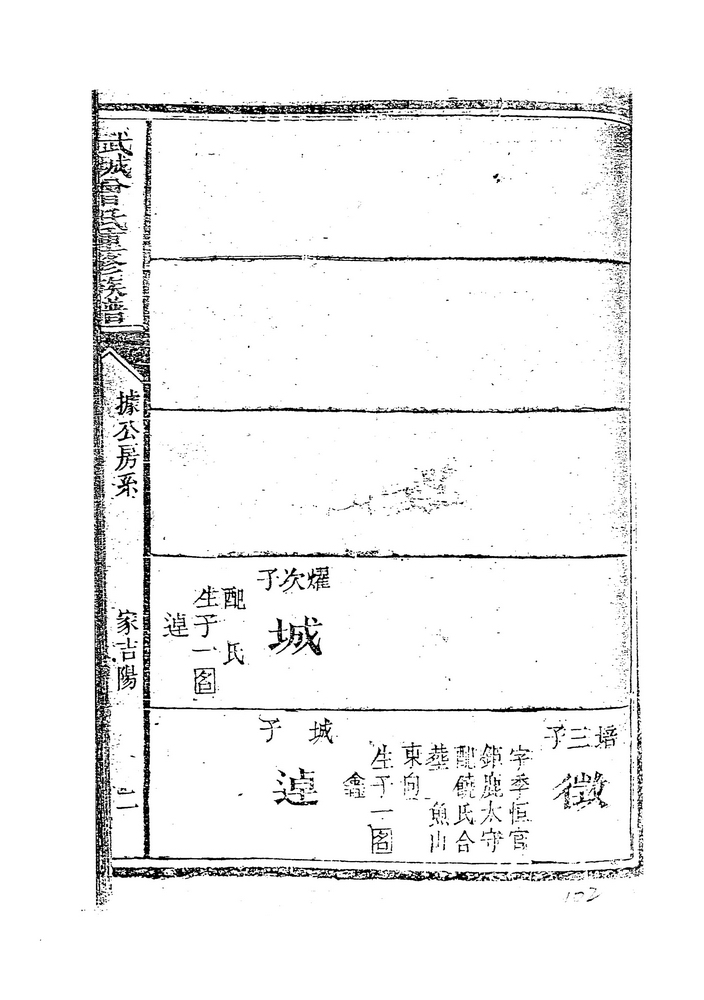 武城曾氏重修族譜
據公房系
家吉陽
二
燿次子
城
配　氏
生子一名
逴
培三子
徵
字季恒官
鉅鹿太守
配饒氏合
葬　魚山
東向
生子一名
鑫
城子
逴
102